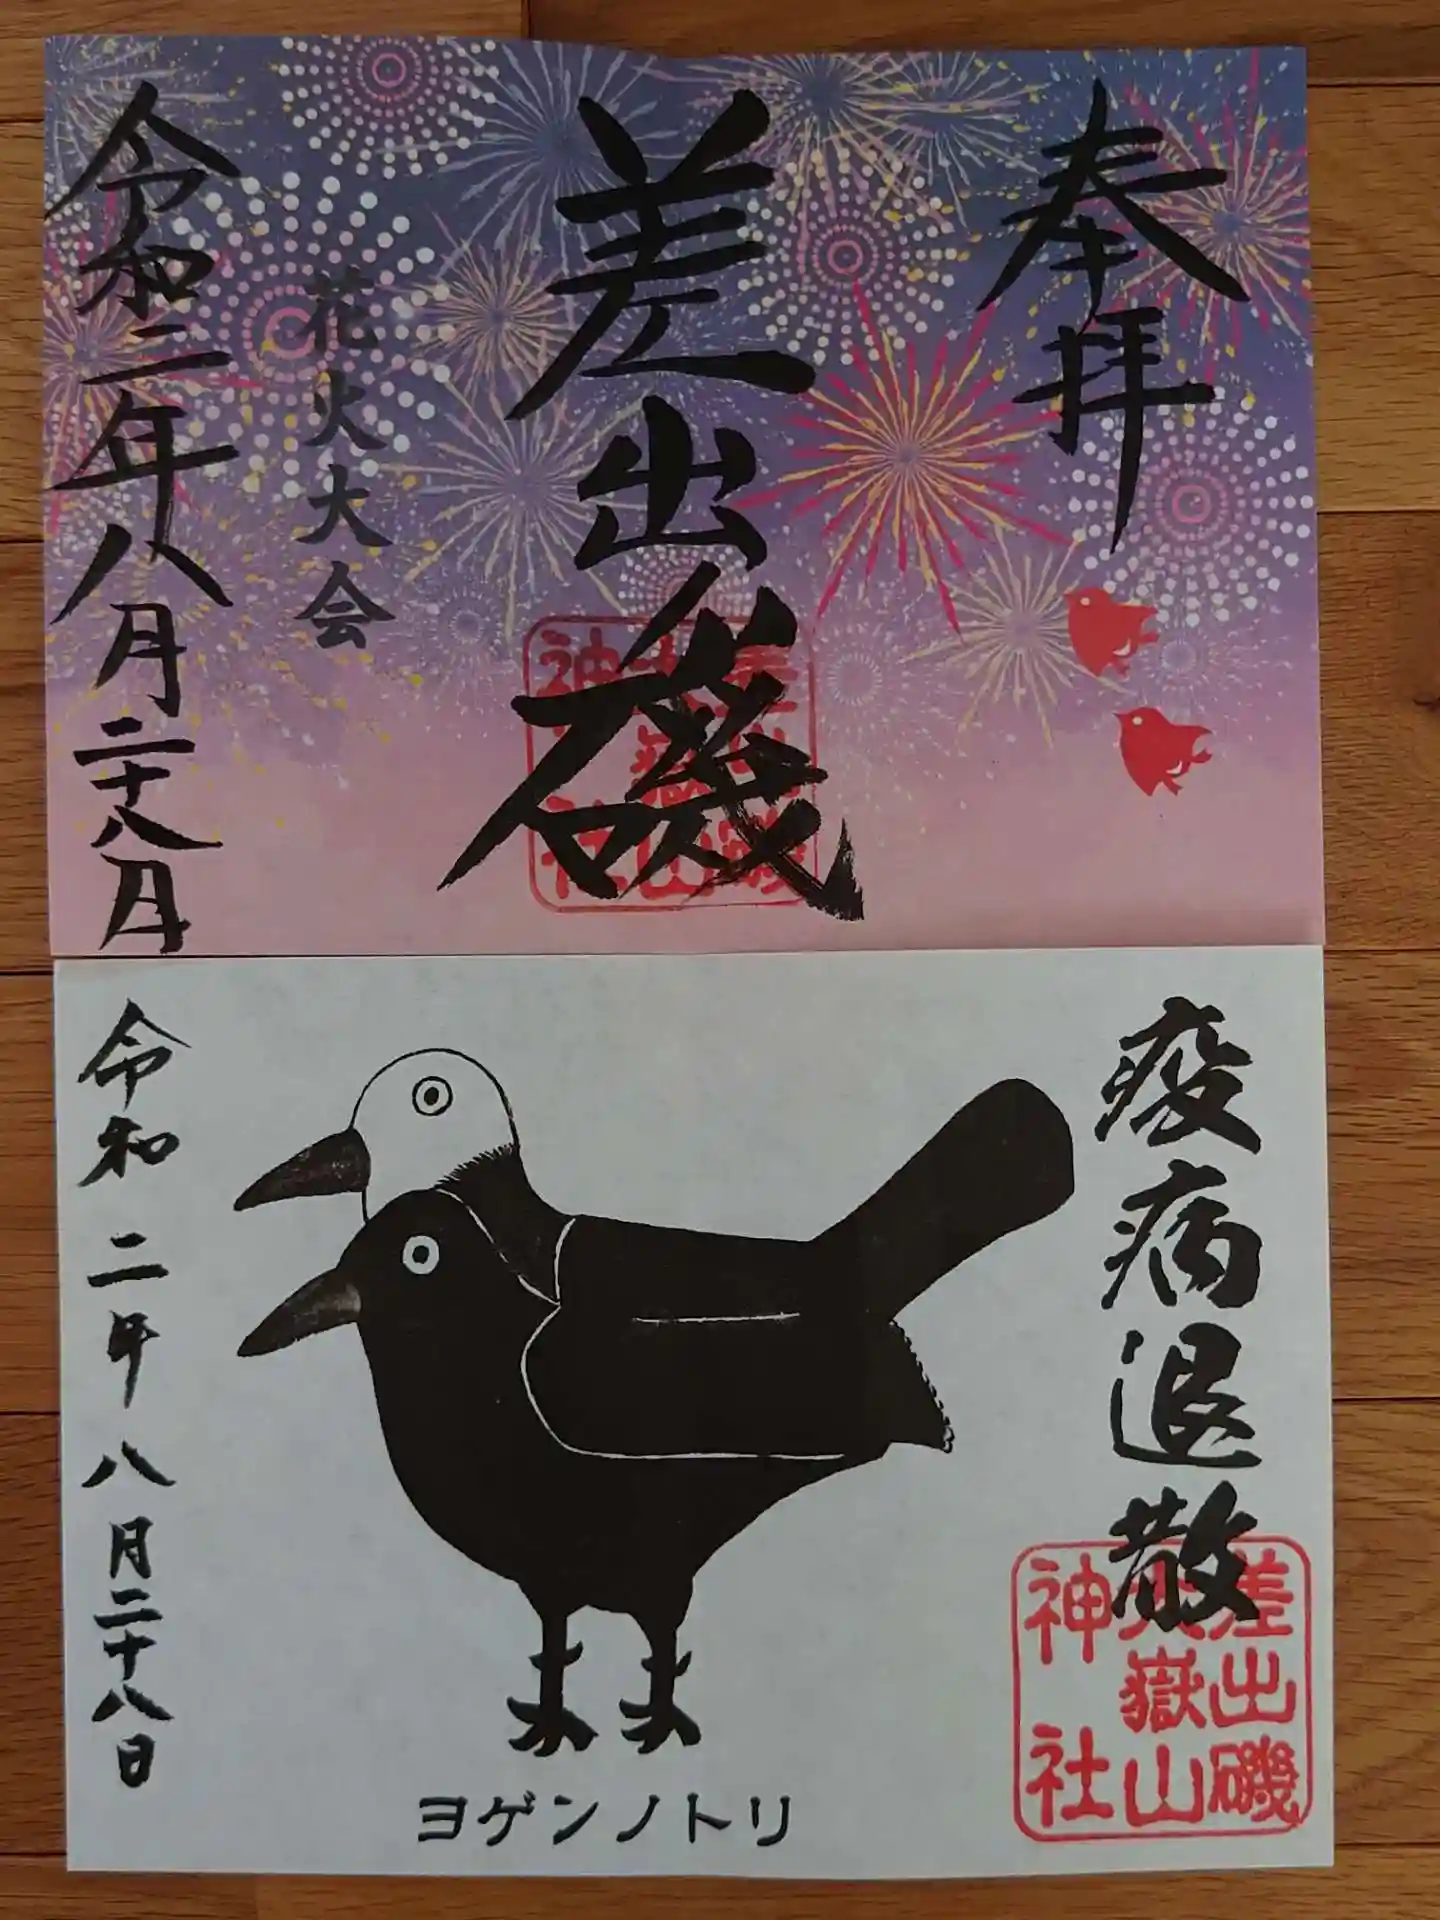 奉拝
差出磯
差出磯
大嶽山
神社
花火大会
令和二年八月二十八日
疫病退散
差出磯
大嶽山
神社
ヨゲンノトリ
令和二年八月二十八日